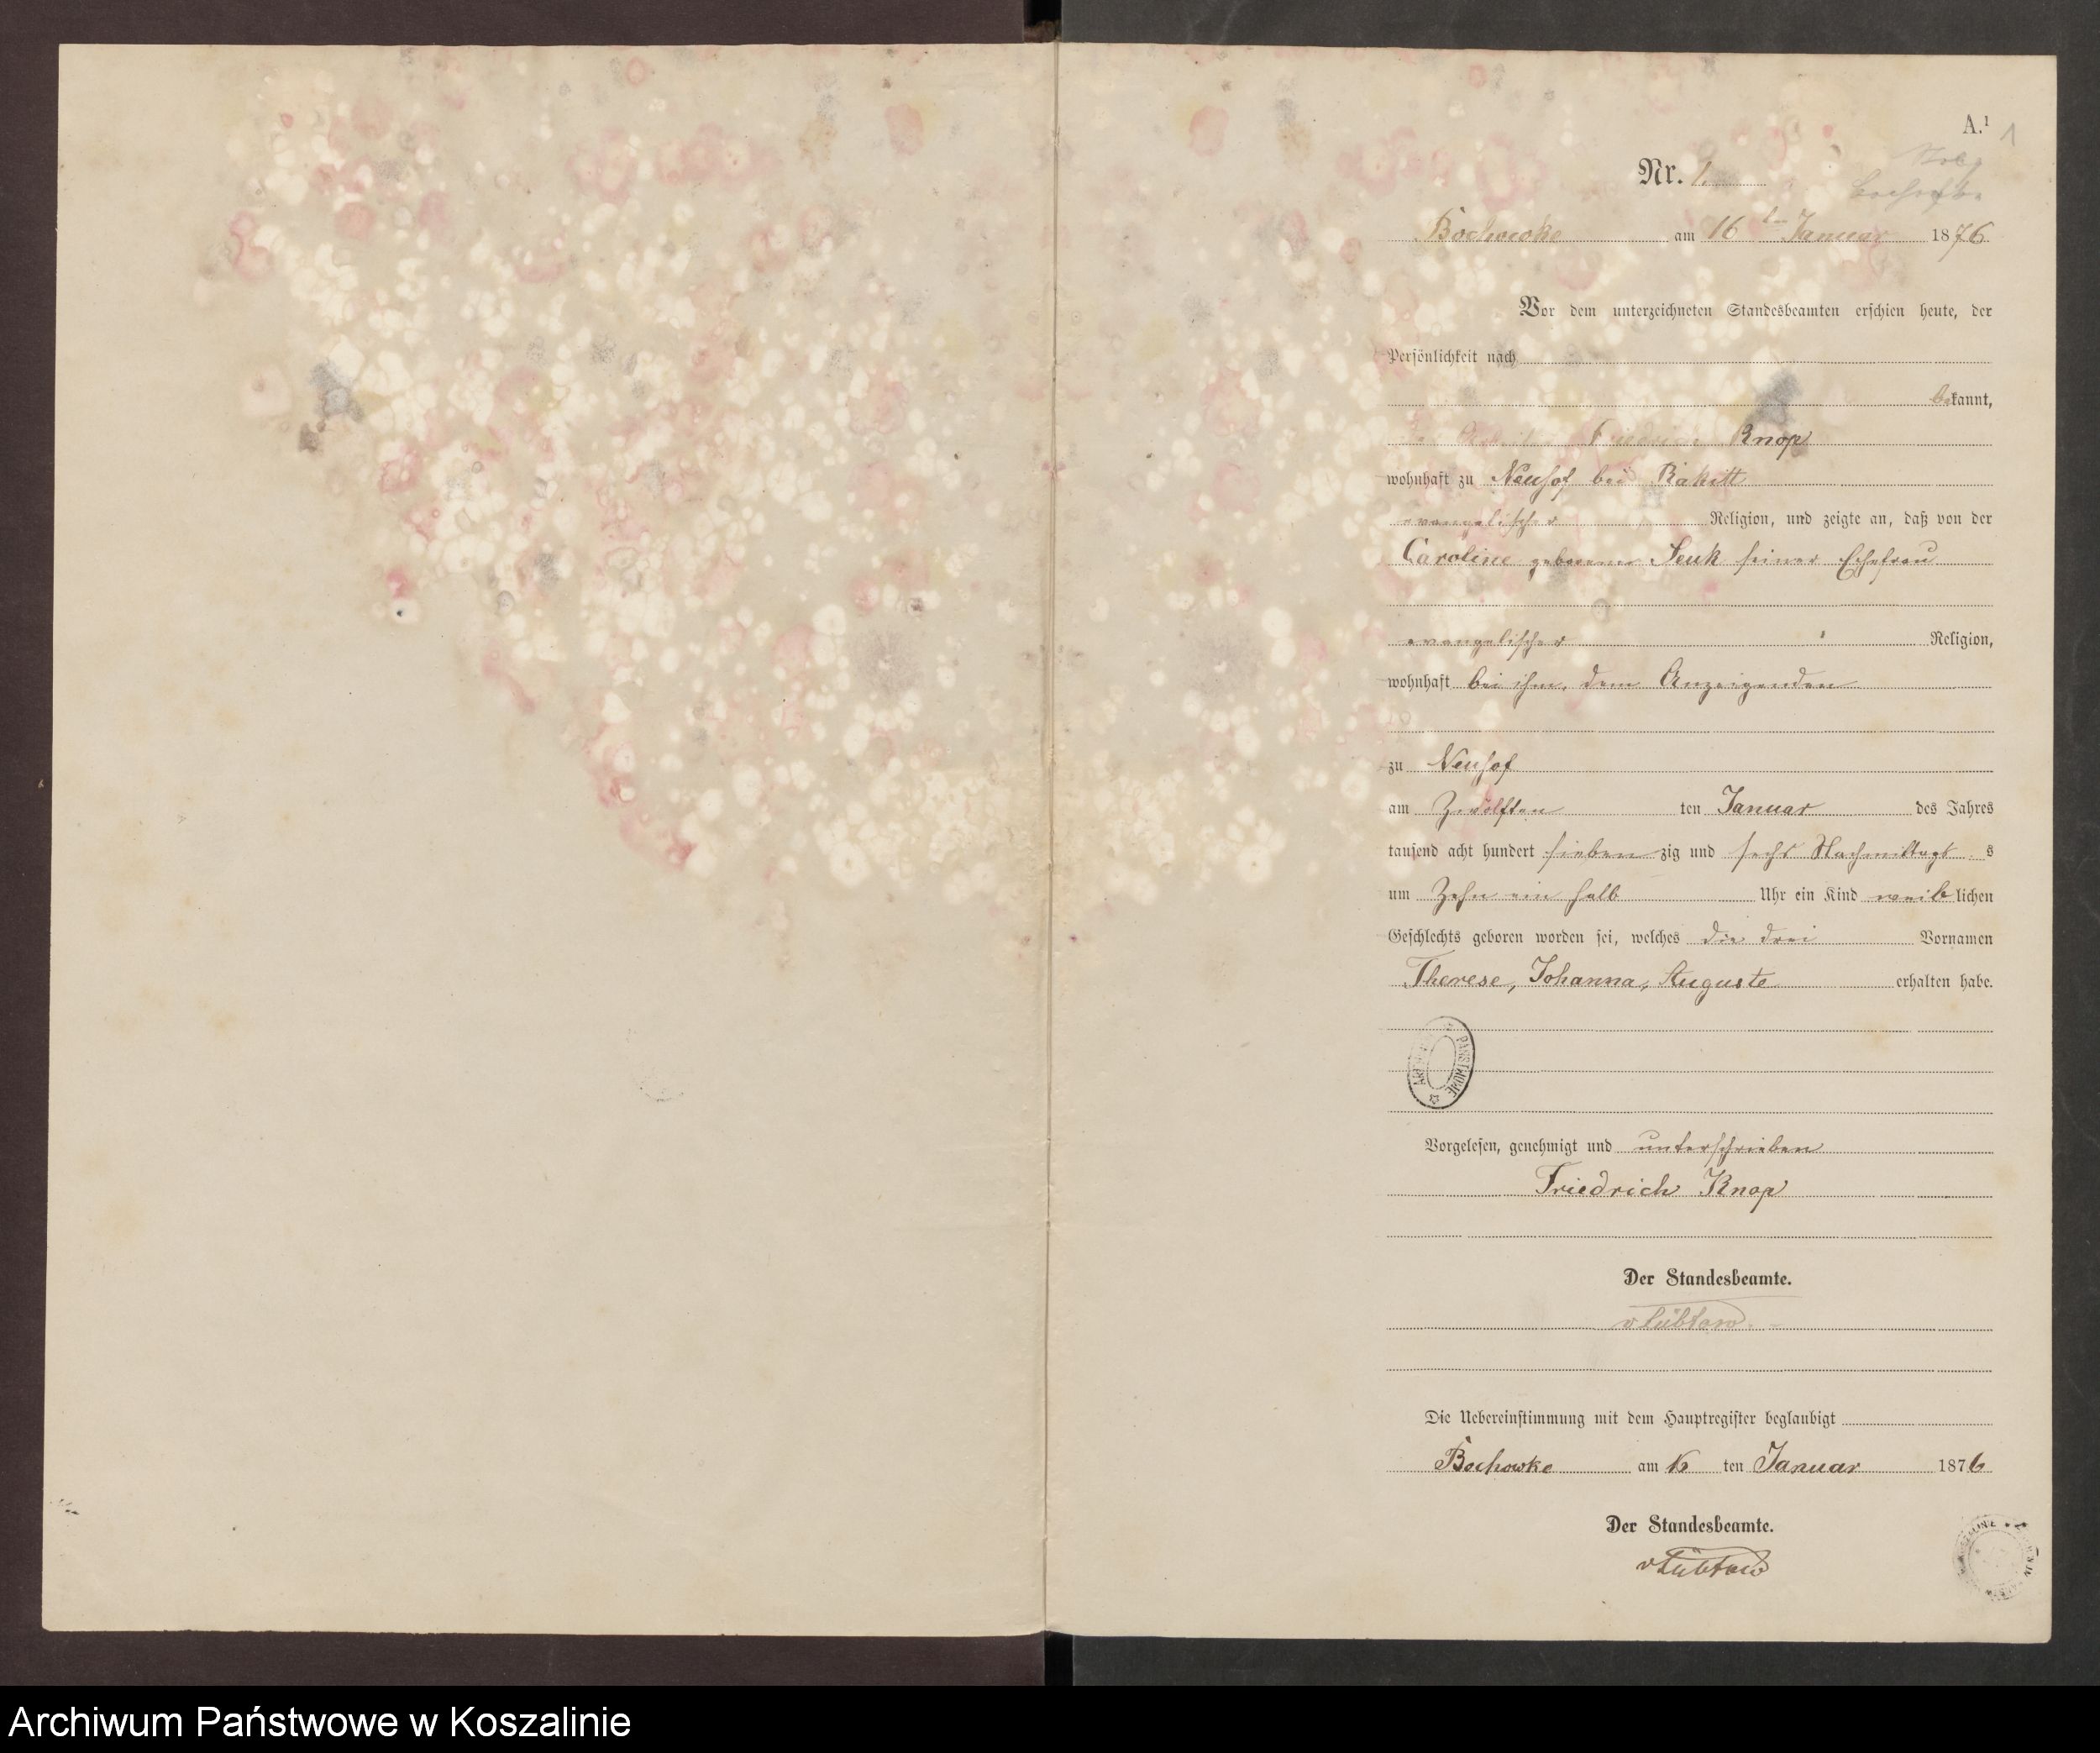 A.¹
1
Nr. 1.
Bochowke am 16 ten Januar 1876
Vor dem unterzeichneten Standesbeamten erschien heute, der
Persönlichkeit nach
bekannt,
Friedrich Knop
wohnhaft zu Neuhof bei Rakitt
evangelischer Religion, und zeigte an, daß von der
Caroline geborenen seiner Ehefrau
evangelischer Religion,
wohnhaft bei ihm, dem Anzeigenden
zu Neuhof
am Zwölften ten Januar des Jahres
tausend acht hundert sieben zig und sechs Nachmittags s
um Zehn ein halb Uhr ein Kind weiblichen
Geschlechts geboren worden sei, welches die drei Vornamen
Therese, Johanna, Auguste erhalten habe.
PAŃSTWOWE
Vorgelesen, genehmigt und unterschrieben
Friedrich Knop
Der Standesbeamte.
vLübtow.
Die Uebereinstimmung mit dem Hauptregister beglaubigt
Bochowke am 16 ten Januar 1876
Der Standesbeamte.
vLübtow
Archiwum Państwowe w Koszalinie